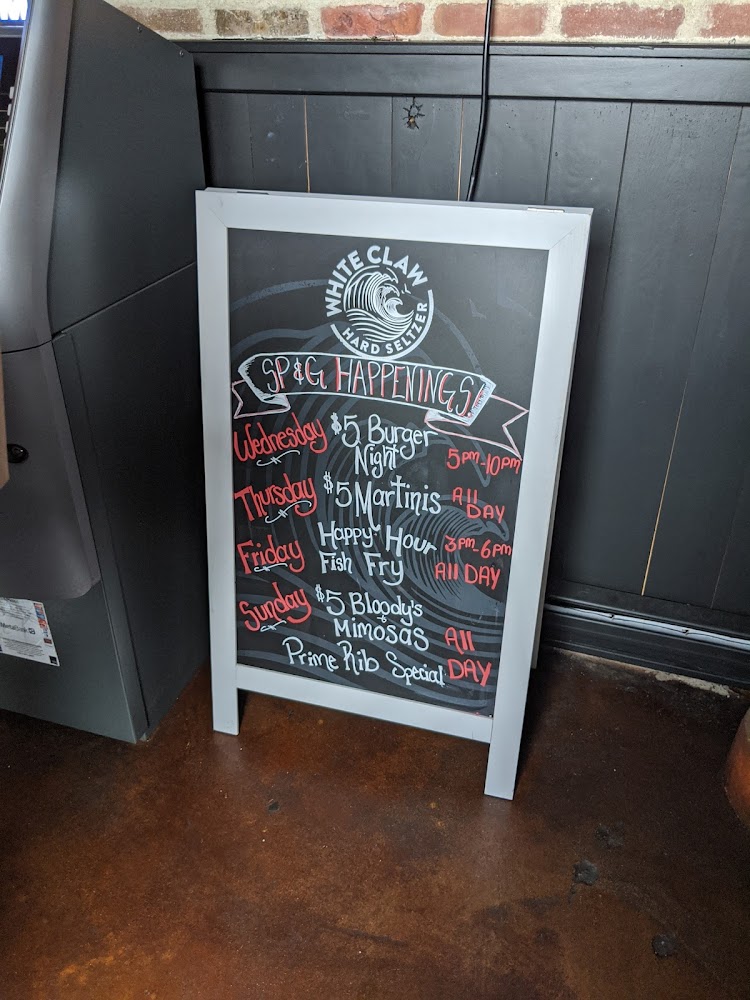 WHITE CLAW
HARD SELTZER
SP&G HAPPENINGS
Wednesday $5 Burger
Night 5pm-10pm
Thursday $5 Martinis All
DAY
Friday Happy Hour 3pm-6pm
Fish Fry All DAY
Sunday $5 Bloody's
& Mimosas All
Prime Rib Special DAY